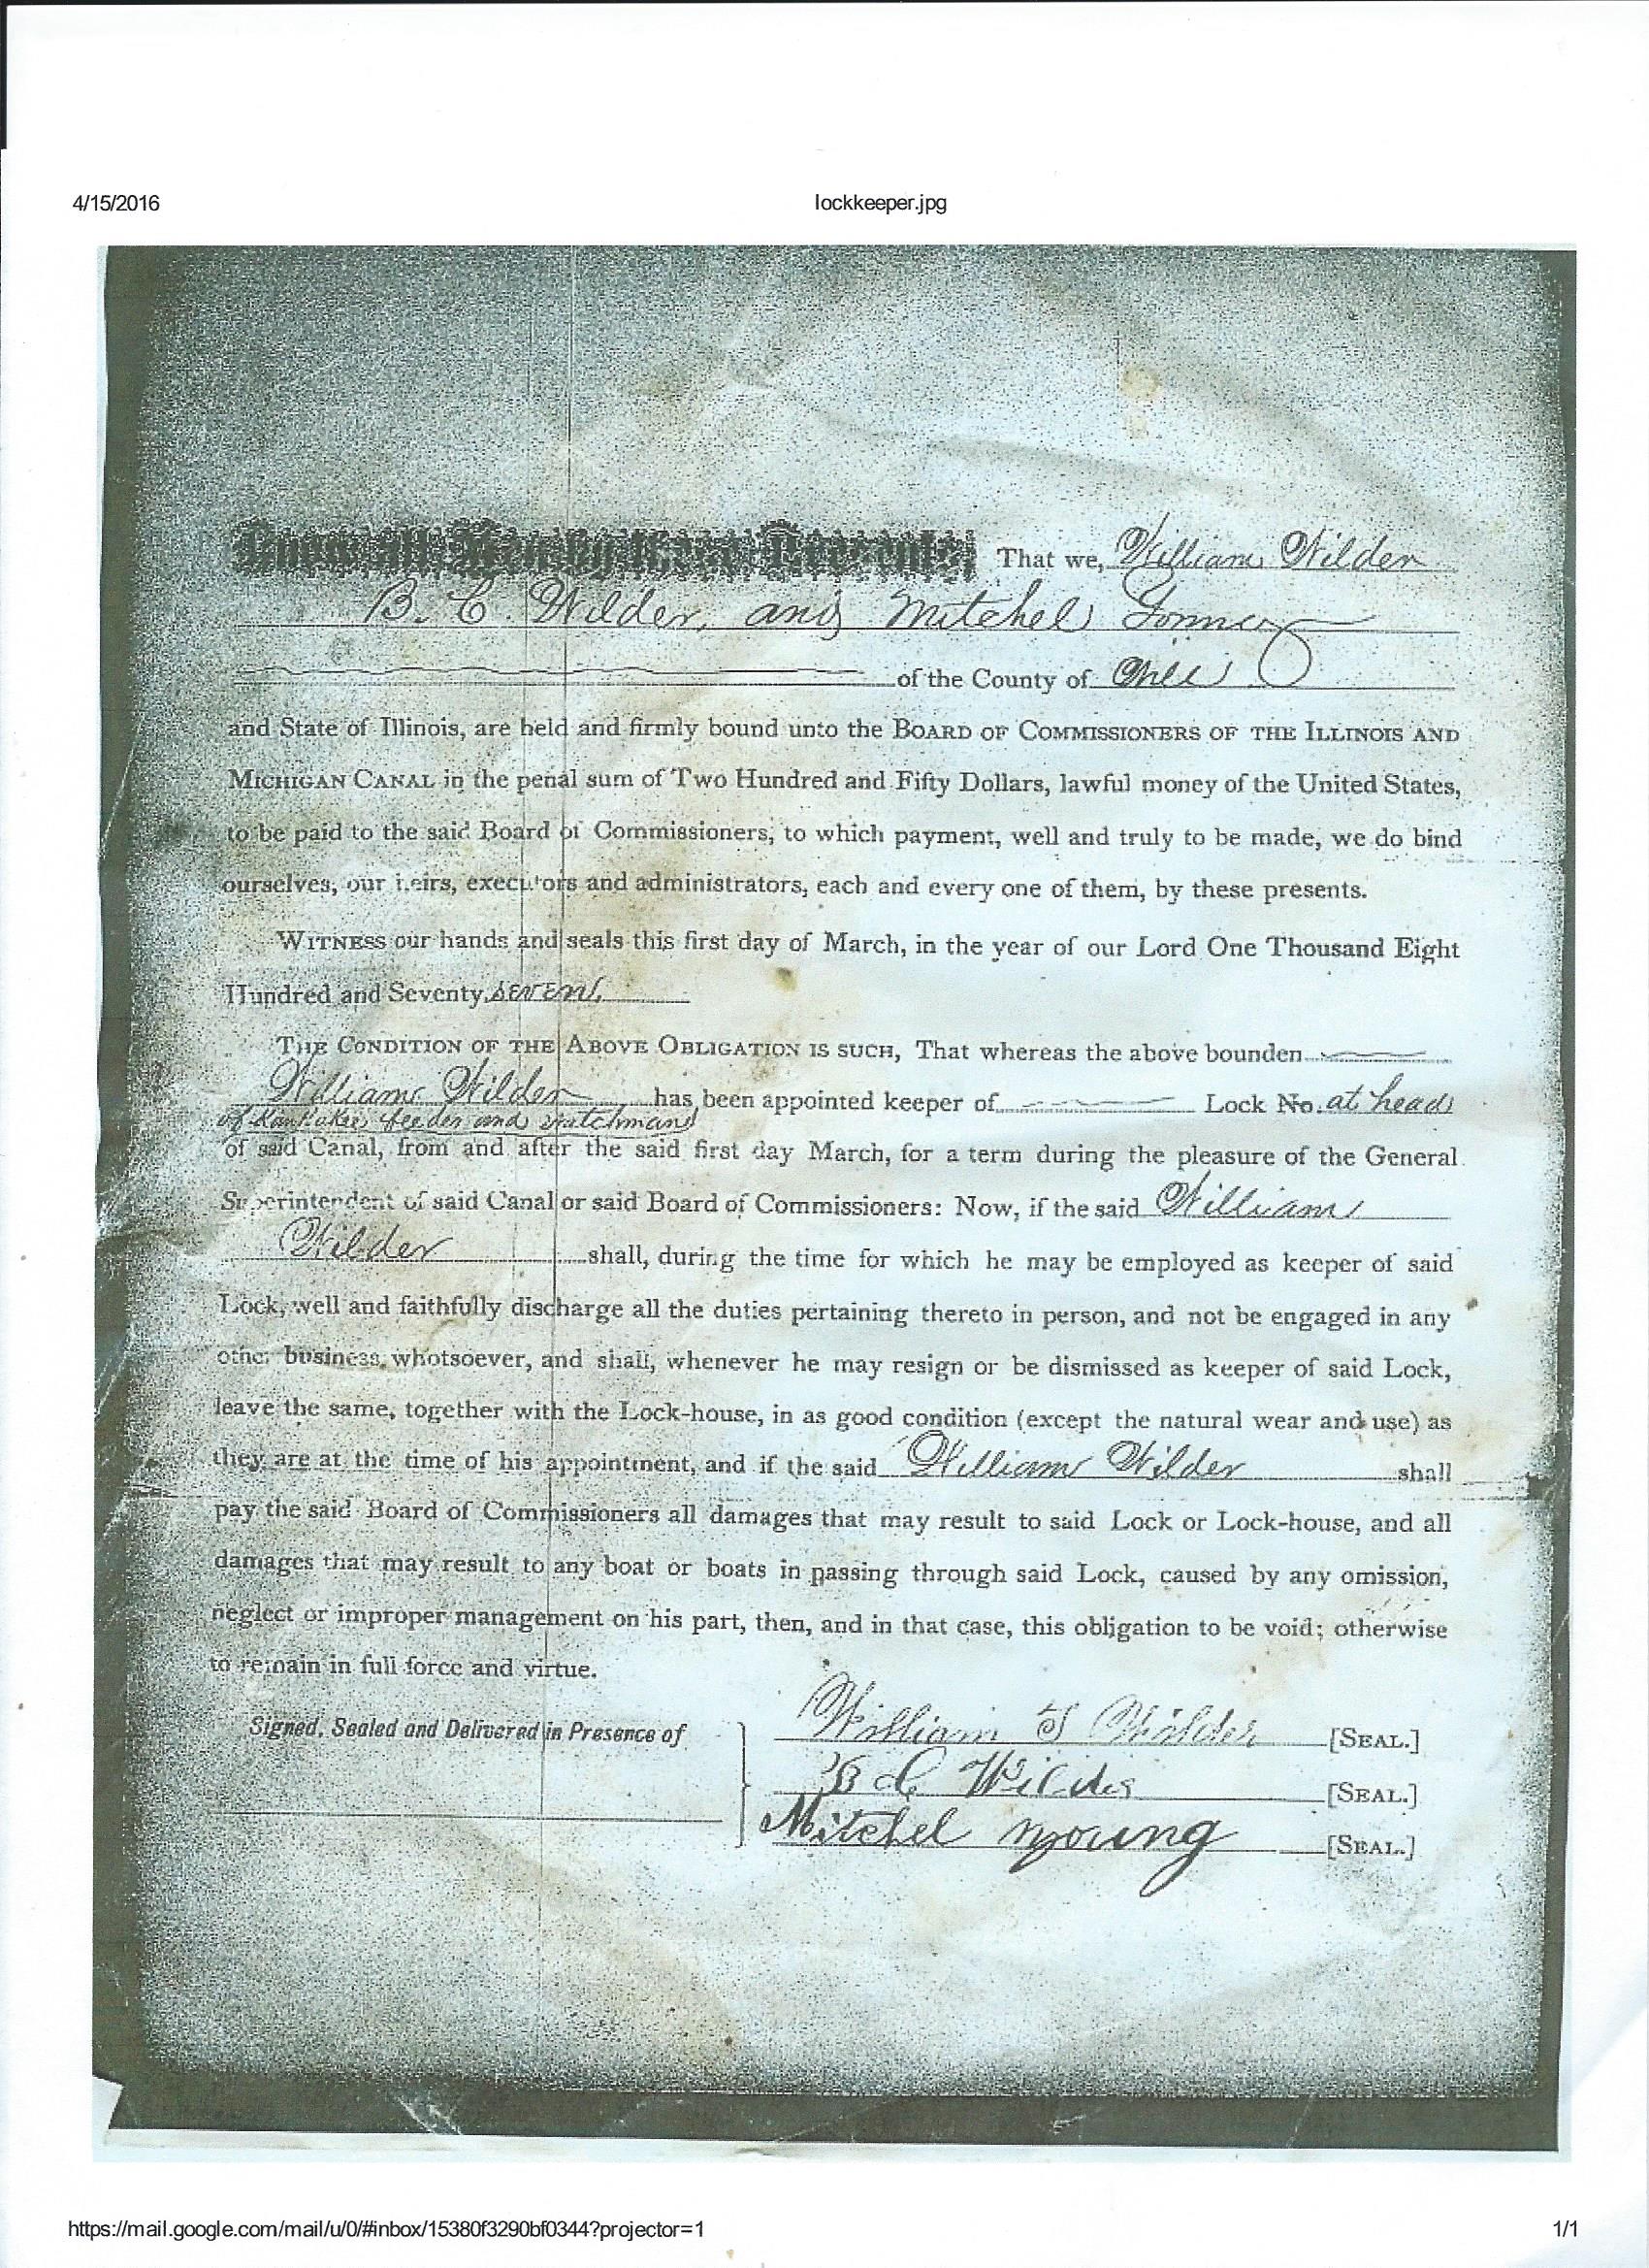 4/15/2016
lockkeeper.jpg
Know all Men by these Presents, That we, William Wilder
B. C. Wilder, and Mitchel
of the County of Will
and State of Illinois, are held and firmly bound unto the BOARD OF COMMISSIONERS OF THE ILLINOIS AND
MICHIGAN CANAL in the penal sum of Two Hundred and Fifty Dollars, lawful money of the United States,
to be paid to the said Board of Commissioners, to which payment, well and truly to be made, we do bind
ourselves, our heirs, executors and administrators, each and every one of them, by these presents.
WITNESS our hands and seals this first day of March, in the year of our Lord One Thousand Eight
Hundred and Seventy seven.
THE CONDITION OF THE ABOVE OBLIGATION IS SUCH, That whereas the above bounden
William Wilder has been appointed keeper of Lock No. at head
of Kankakee feeder and watchman
of said Canal, from and after the said first day March, for a term during the pleasure of the General
Superintendent of said Canal or said Board of Commissioners: Now, if the said William
Wilder shall, during the time for which he may be employed as keeper of said
Lock, well and faithfully discharge all the duties pertaining thereto in person, and not be engaged in any
other business, whotsoever, and shall, whenever he may resign or be dismissed as keeper of said Lock,
leave the same, together with the Lock-house, in as good condition (except the natural wear and use) as
they are at the time of his appointment, and if the said William Wilder shall
pay the said Board of Commissioners all damages that may result to said Lock or Lock-house, and all
damages that may result to any boat or boats in passing through said Lock, caused by any omission,
neglect or improper management on his part, then, and in that case, this obligation to be void; otherwise
to remain in full force and virtue.
Signed, Sealed and Delivered in Presence of
William S Wilder [SEAL.]
B C Wilder [SEAL.]
Mitchel Young [SEAL.]
https://mail.google.com/mail/u/0/#inbox/15380f3290bf0344?projector=1
1/1